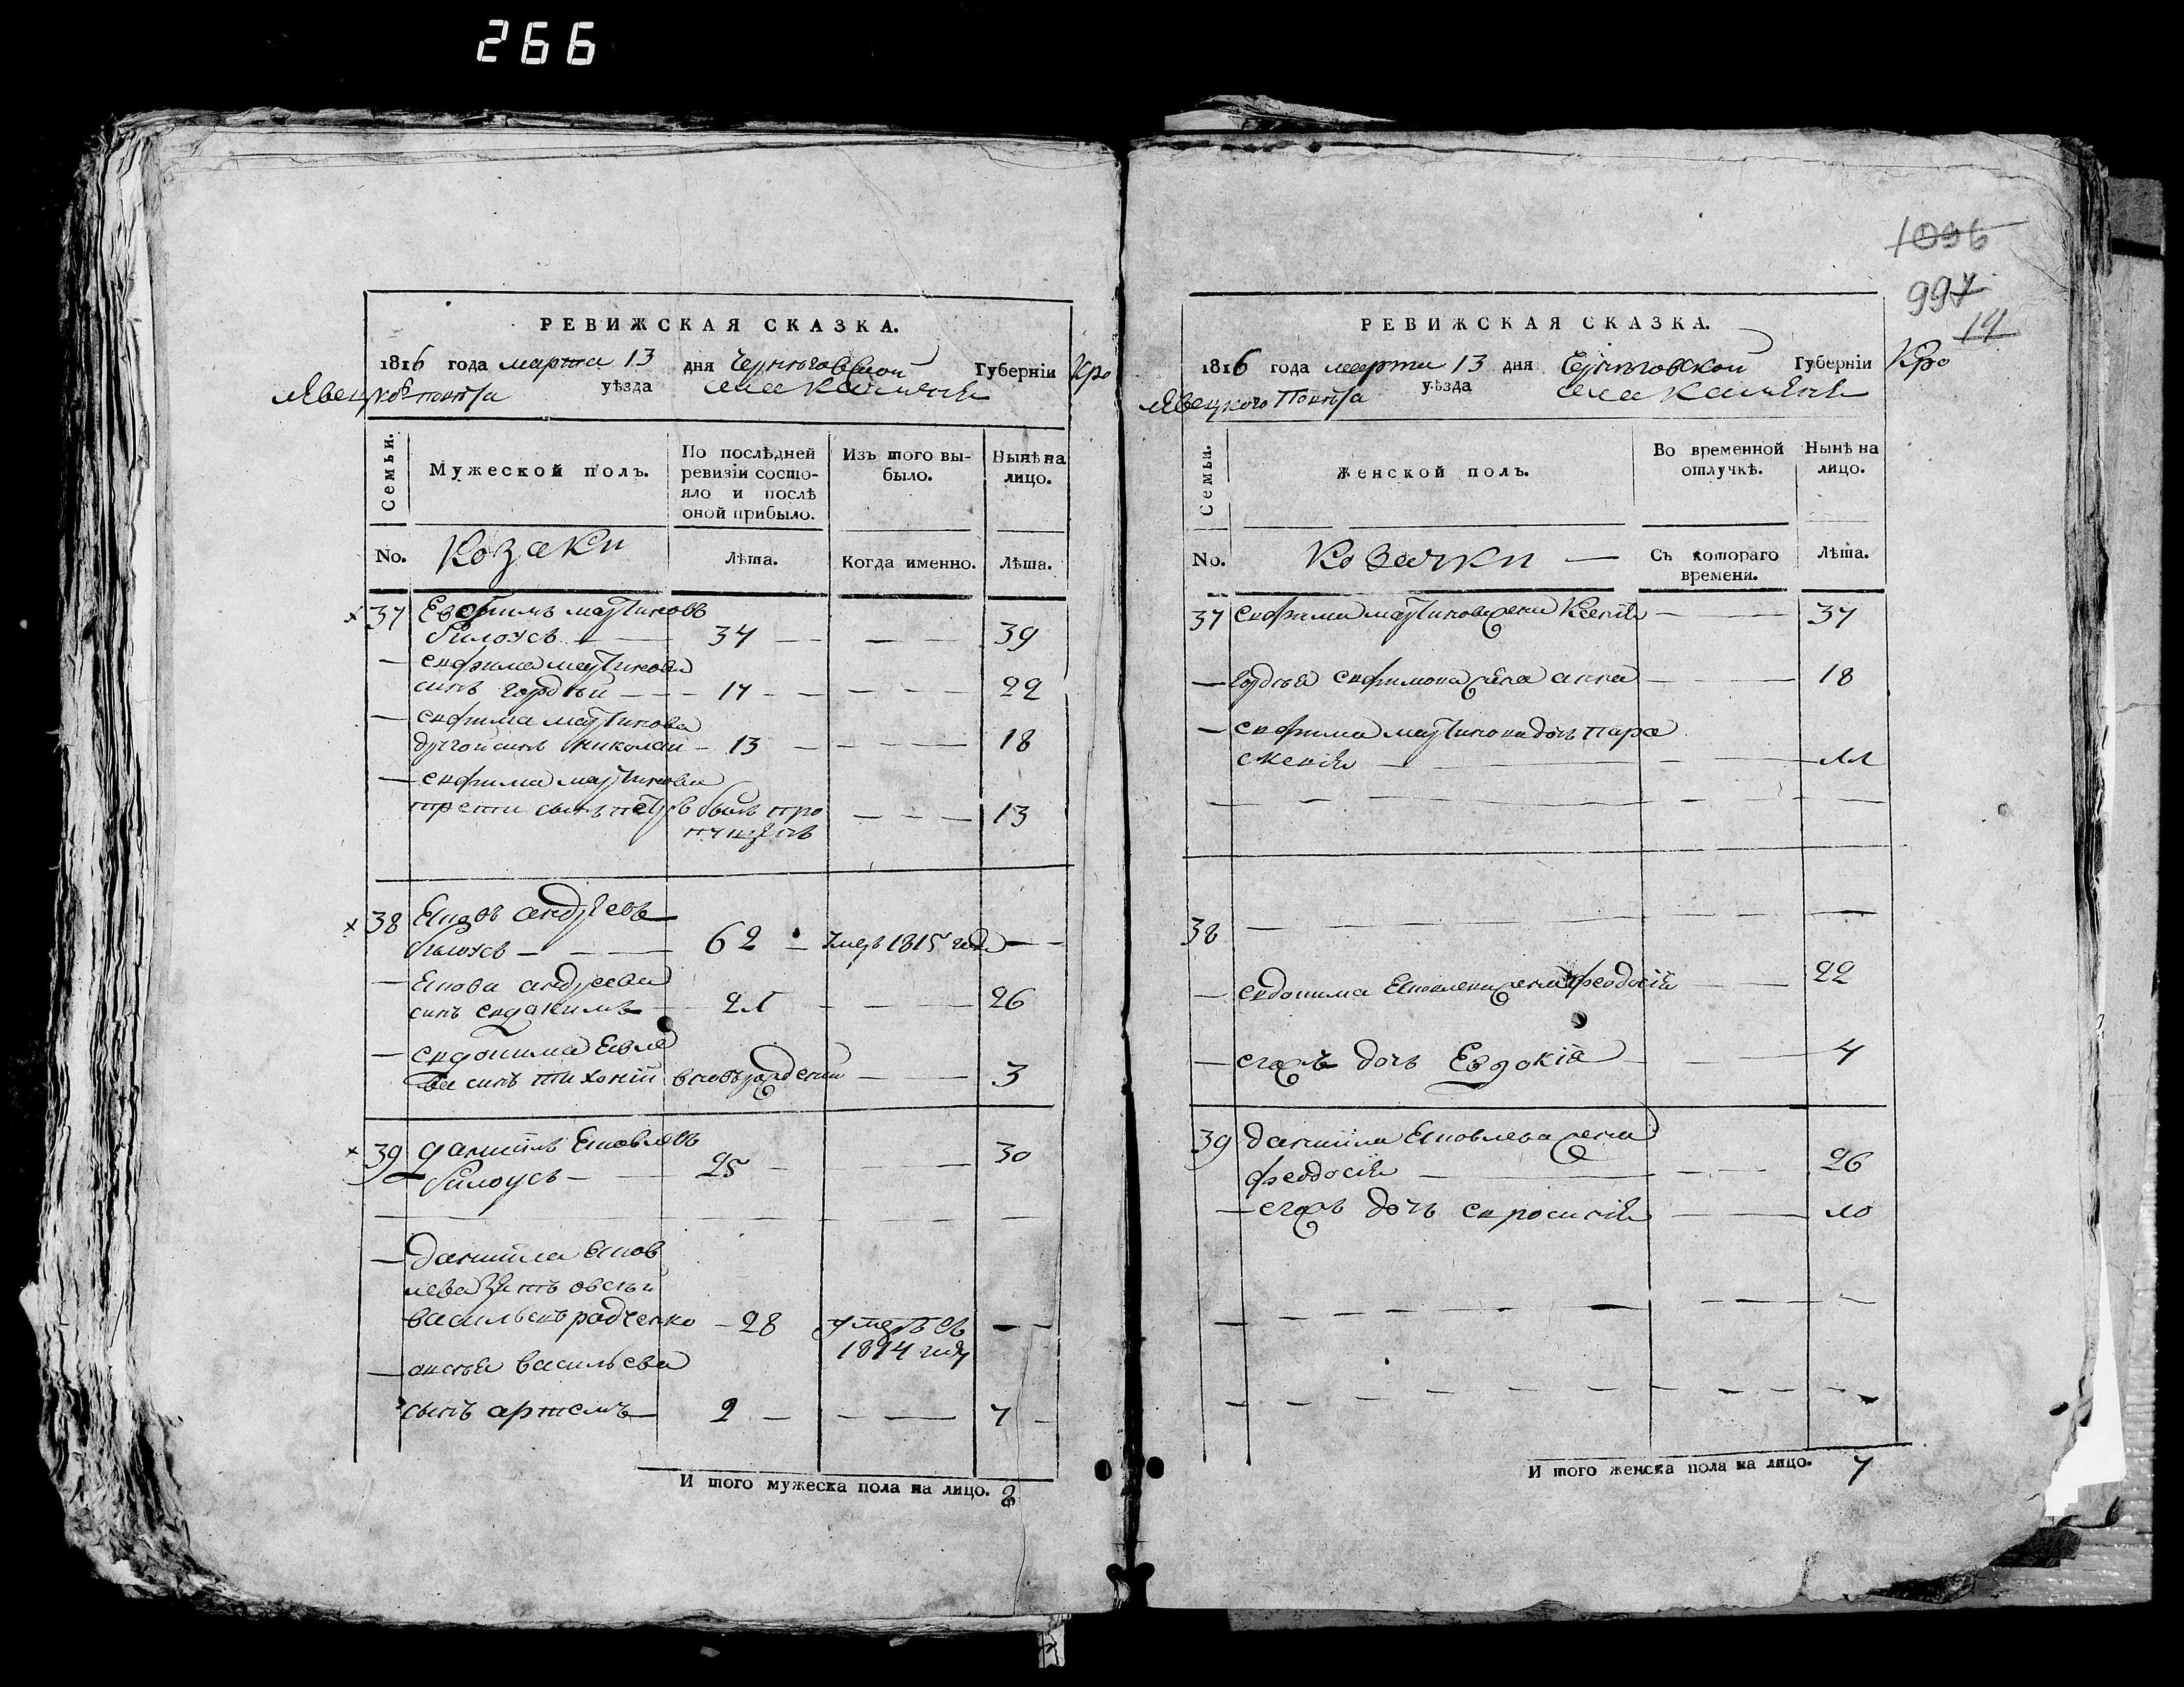 266
РЕВИЖСКАЯ СКАЗКА.
1816 года марта 13 дня Черниговской Губерніи Кро
левецкого повѣта уѣзда села Камяня
Семьи.
Мужеской полъ.
По послѣдней ревизіи состо-
яло и послѣ
оной прибыло.
Изъ того вы-
было.
Нынѣ на
лицо.
No.
Козаки
Лѣта.
Когда именно.
Лѣта.
37 Евфимъ мартиновъ
билоусъ 34 39
евфима мартинова
синъ гордѣй 17 22
евфима мартинова
другой синъ николай 13 18
евфима мартинова
трети сынъ петръ былъ про
пущенъ 13
38 Яковъ андреевъ
билоусъ 62 умеръ 1815 года
Якова андреева
синъ евдокимъ 21 26
евдокима Яковле
ва синъ тихоній вновьрожденій 3
39 даніилъ Яковлевъ
билоусъ 25 30
даніила Яков
лева зять овсѣй
васильевъ радченко 28 умеръ въ
1814 году
овсѣя васильева
сынъ артемъ 2 7
И того мужеска пола на лицо. 8
1096
997
14
РЕВИЖСКАЯ СКАЗКА.
1816 года марта 13 дня Черниговской Губерніи Кро
левецкого Повѣта уѣзда села Камяня
Семьи.
Женской полъ.
Во временной
отлучкѣ.
Нынѣ на
лицо.
No.
Козачки
Съ котораго
времени.
Лѣта.
37 евфима мартинова жена Ксенія 37
гордѣя евфимова жена анна 18
евфима мартинова дочь пара
скевія 11
38
евдокима Яковлева жена феодосія 22
егожъ дочь Евдокія 4
39 даніила Яковлева жена
феодосія 26
егожъ дочь евросинія 10
И того женска пола на лицо. 7